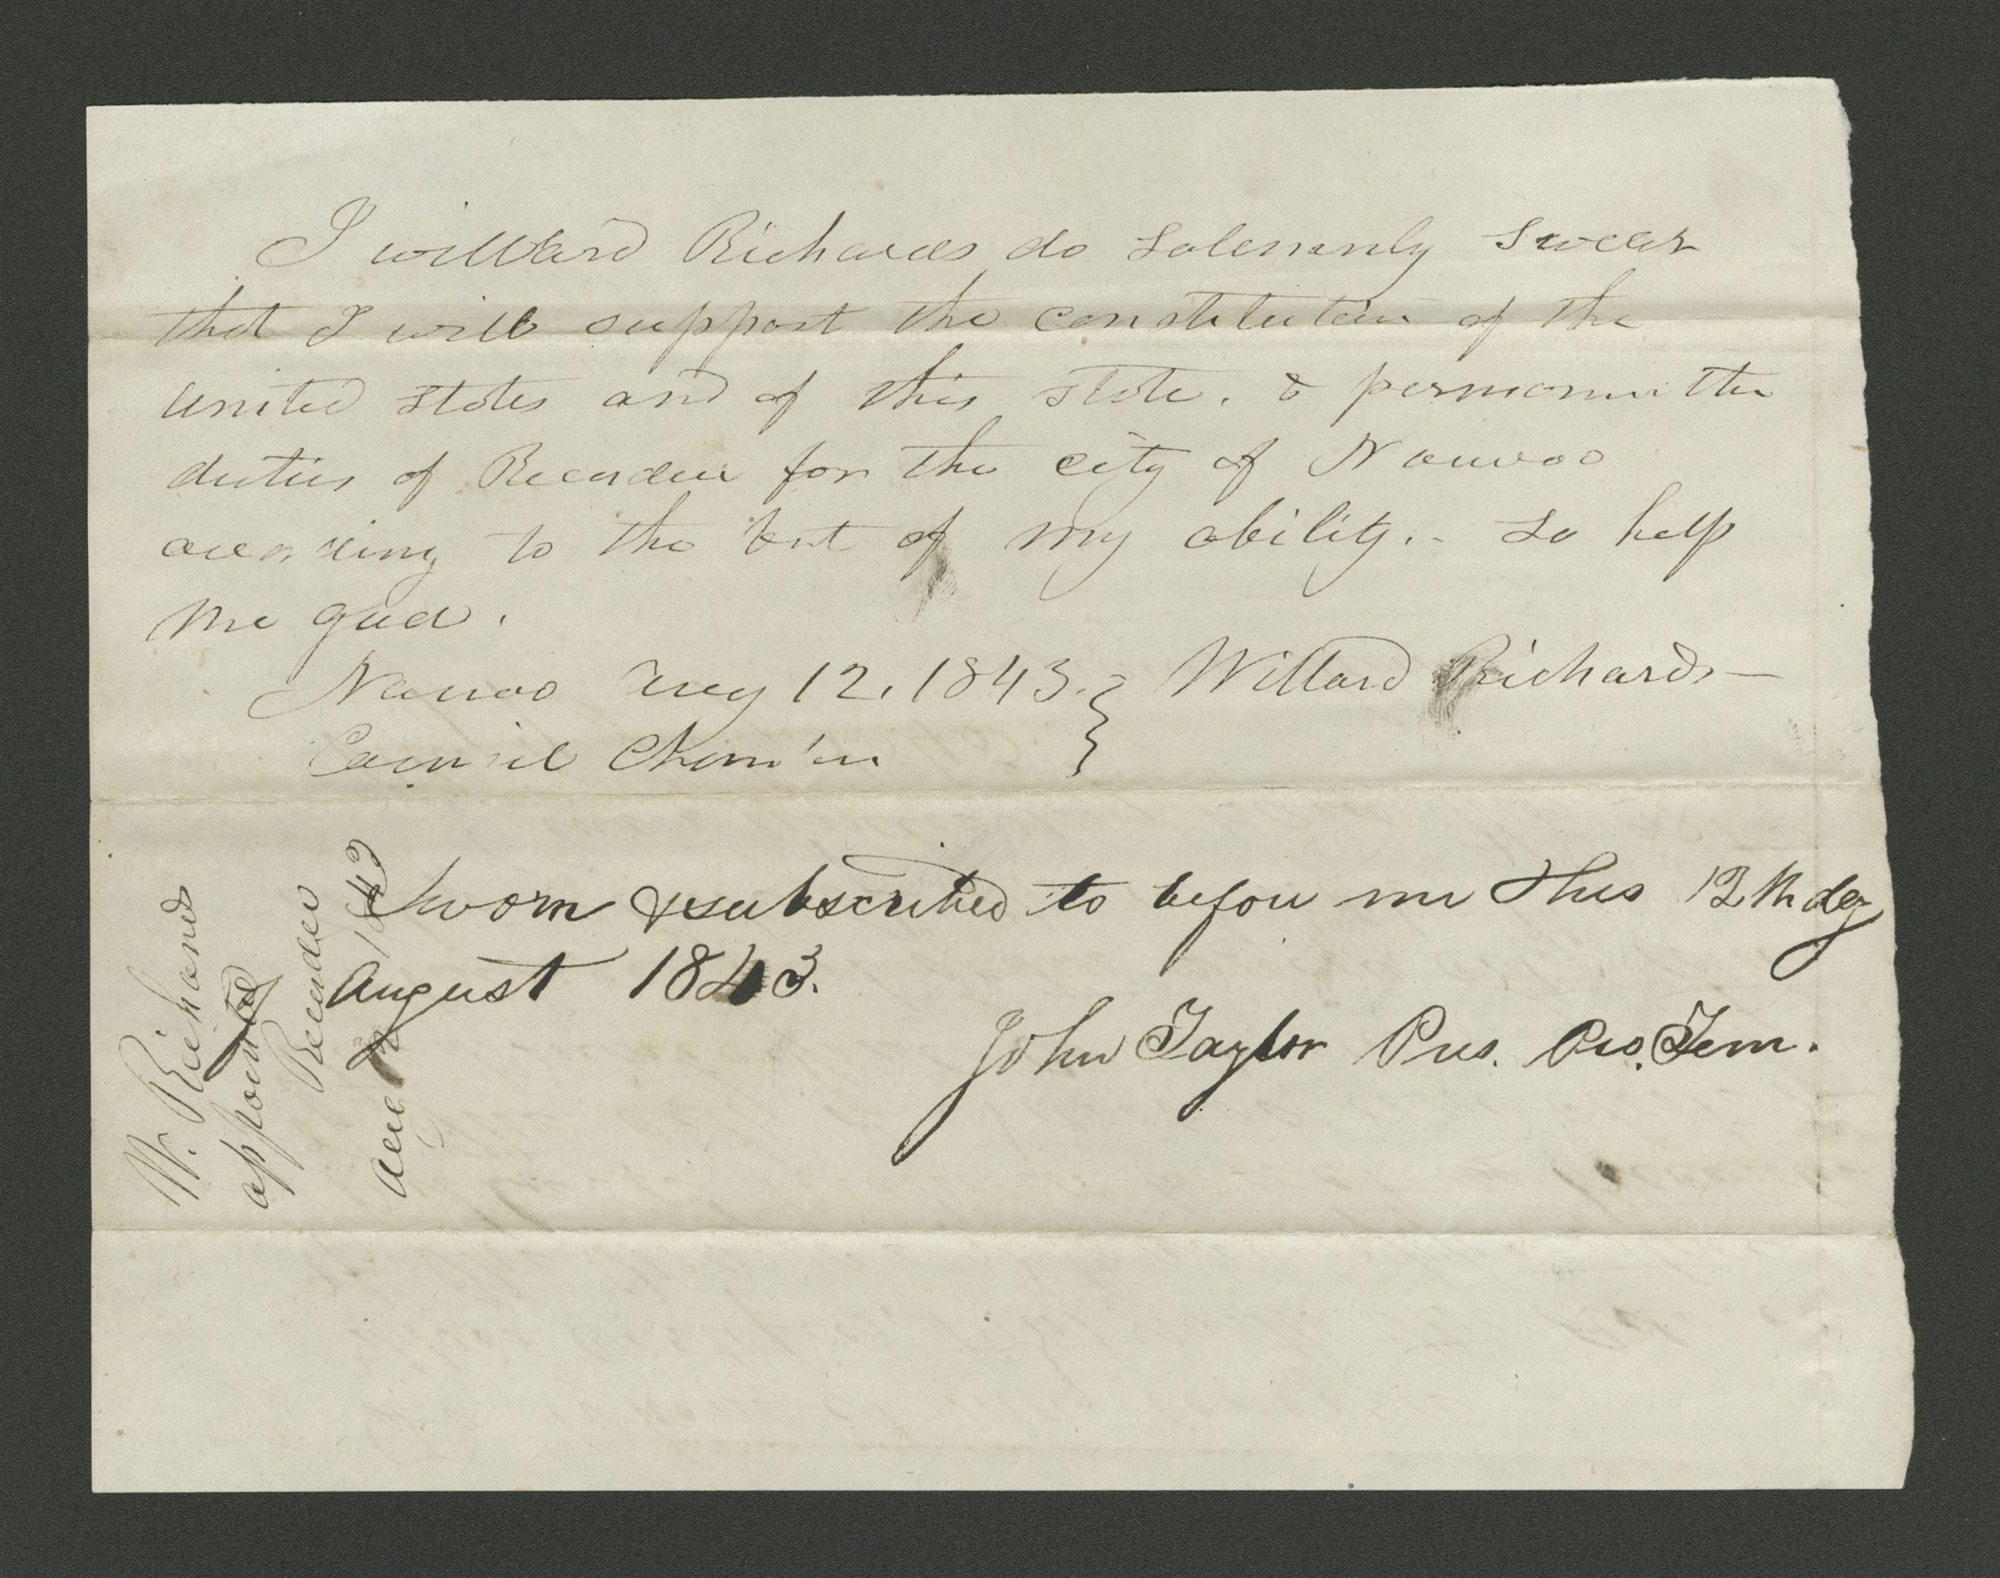 I willard Richards do solemnly swear
that I will support the constitution of the
united states and of this state. & the
duties of Recorder for the city of Nauvoo
according to the best of my ability.- So help
me god.
Nauvoo Aug 12. 1843. } Willard Richards—
Council Cham'er
Sworn & subscribed to before me this 12th day
August 1843.
John Taylor Pres. Pro. Tem.
W. Richards
appointed
Recorder
Aug 12 1843